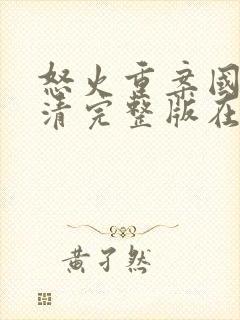 怒火重案國
清完整版在
黃孑然